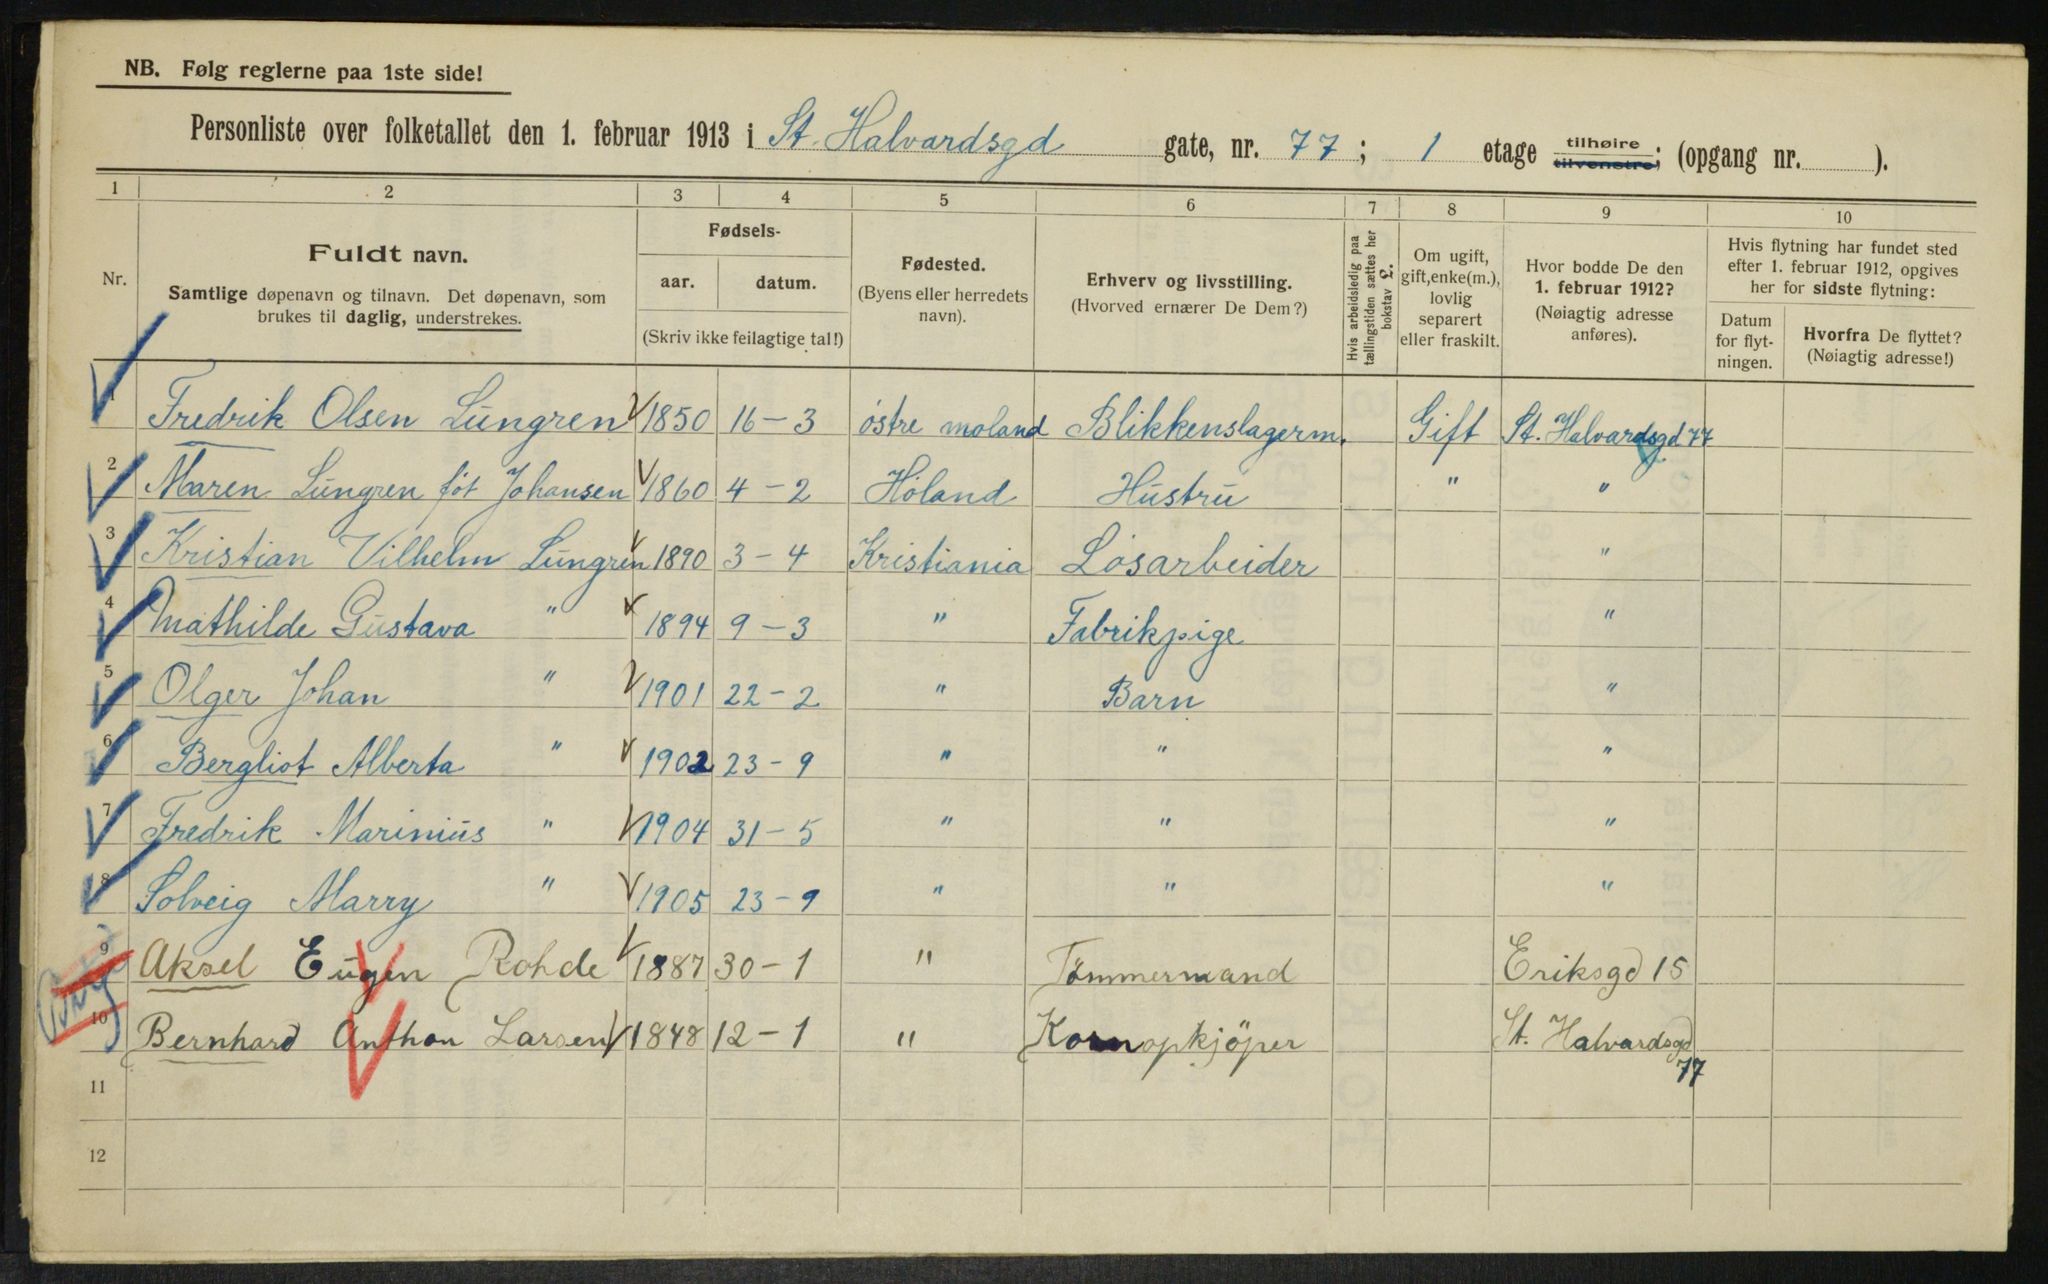 NB. Følg reglerne paa 1ste side!
Personliste over folketallet den 1. februar 1913 i St. Halvardsgd gate, nr. 77; 1 etage tilhøire tilvenstre; (opgang nr. ).
1 2 3 4 5 6 7 8 9 10
Nr.
Fuldt navn.
Samtlige døpenavn og tilnavn. Det døpenavn, som
brukes til daglig, understrekes.
Fødsels-
aar. datum.
(Skriv ikke feilagtige tal!)
Fødested.
(Byens eller herredets
navn).
Erhverv og livsstilling.
(Hvorved ernærer De Dem?)
Hvis arbeidsledig paa
tællingstiden sættes her
bokstav £.
Om ugift,
gift, enke(m.),
lovlig
separert
eller fraskilt.
Hvor bodde De den
1. februar 1912?
(Nøiagtig adresse
anføres).
Hvis flytning har fundet sted
efter 1. februar 1912, opgives
her for sidste flytning:
Datum
for flyt-
ningen.
Hvorfra De flyttet?
(Nøiagtig adresse!)
1 Fredrik Olsen Lungren 1850 16-3 östre moland Blikkenslagerm. Gift St. Halvardsgd 77
2 Maren Lungren föt Johansen 1860 4-2 Höland Hustru " "
3 Kristian Vilhelm Lungren 1890 3-4 Kristiania Lösarbeider "
4 Mathilde Gustava " 1894 9-3 " Fabrikpige "
5 Olger Johan " 1901 22-2 " Barn "
6 Bergliot Alberta " 1902 23-9 " " "
7 Fredrik Marinius " 1904 31-5 " " "
8 Solveig Marry " 1905 23-9 " " "
9 Aksel Eugen Rohde 1887 30-1 " Tømmermand Eriksgd 15
10 Bernhard Anthon Larsen 1848 12-1 " Kornopkjöper St. Halvardsgd
77
11
12